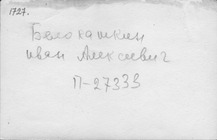 1727.
Белокашкин
иван Алексеевич
П-27333